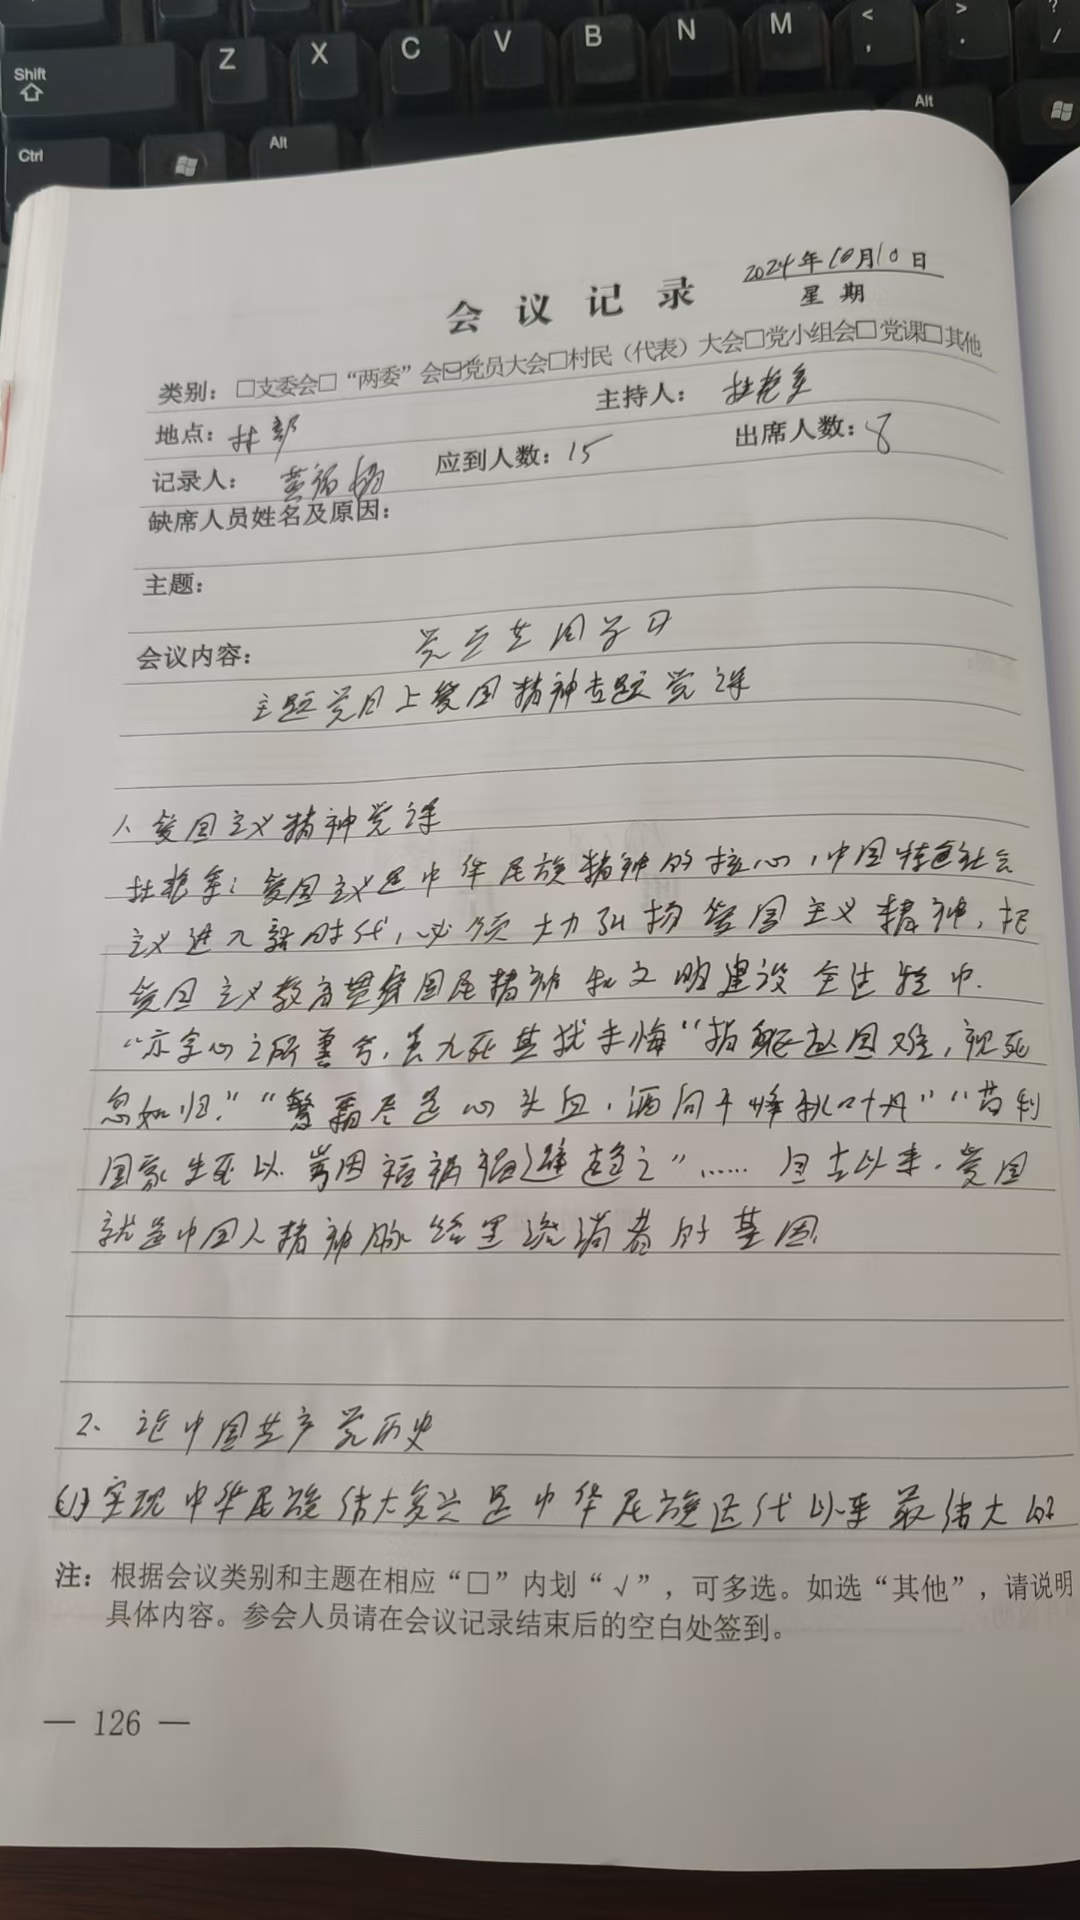 Shift
Z X C V B N M < , > . ? /
Ctrl Alt Alt
会议记录
2024年10月10日
星期
类别：□支委会□“两委”会☑党员大会□村民（代表）大会□党小组会□党课□其他
地点：村部 主持人：
记录人： 应到人数：15 出席人数：8
缺席人员姓名及原因：
主题：
会议内容：
主题党日上爱国精神专题党课
1、爱国主义精神党课
爱国主义是中华民族精神的核心，中国特色社会
主义进入新时代，必须大力弘扬爱国主义精神，把
爱国主义教育贯穿国民精神和文明建设全过程中.
“亦余心之所善兮，虽九死其犹未悔“捐躯赴国难，视死
忽如归.”“繁霜尽是心头血，洒向千峰秋叶丹”“苟利
国家生死以 岂因福祸避趋之”…… 自古以来，爱国
就是中国人精神脉络里流淌着的基因.
2、论中国共产党历史
(1)实现中华民族伟大复兴是中华民族近代以来最伟大的
注：根据会议类别和主题在相应“□”内划“√”，可多选。如选“其他”，请说明
具体内容。参会人员请在会议记录结束后的空白处签到。
— 126 —